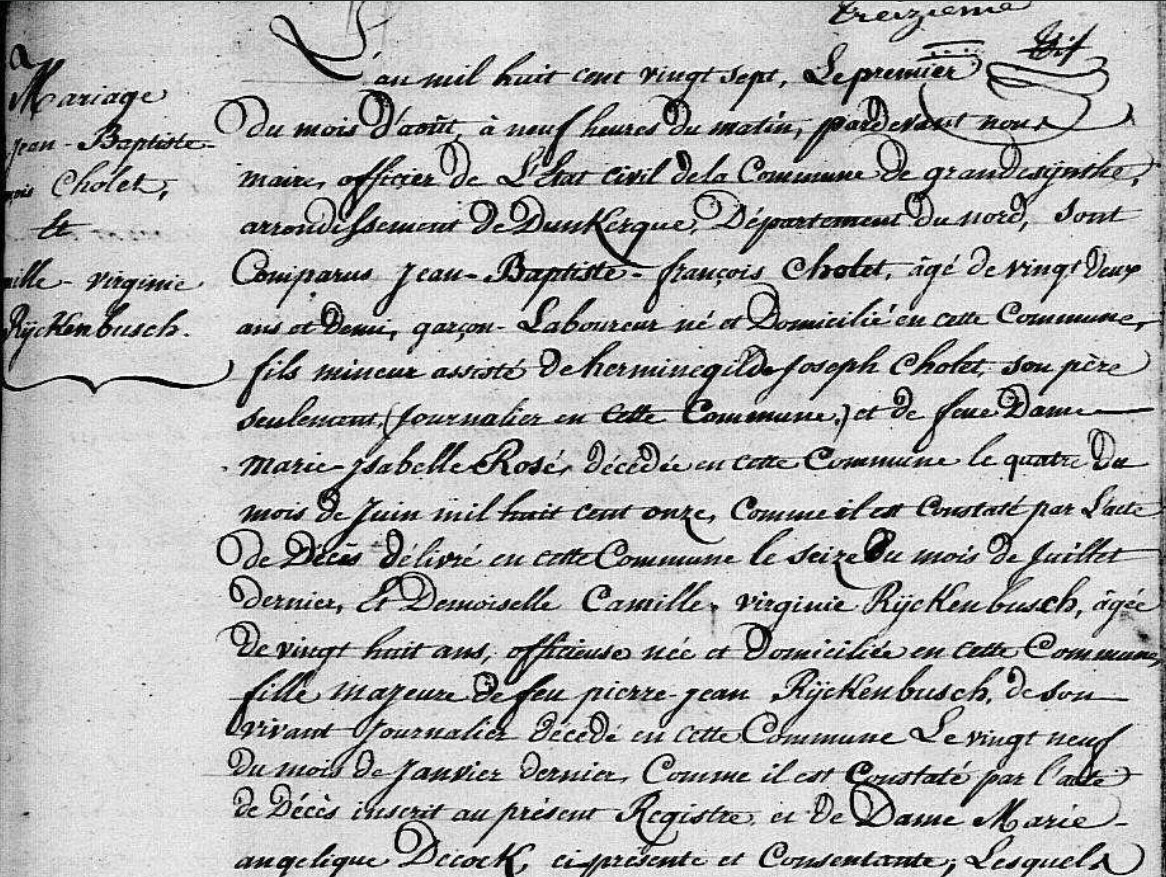 treizieme
Mariage
Jean-Baptiste-
Cholet,
Et
virginie
Rÿckenbusch.
L'an mil huit cent vingt sept, Le premier
du mois d'août, à neuf heures du matin, pardevant nous
maire, officier de L'Etat civil de la Commune de grandesÿnthe,
arrondissement de Dunkerque, Département du nord, sont
Comparus Jean-Baptiste-françois Cholet, âgé de vingt deux
ans et demi, garçon-Laboureur né et Domicilié en cette Commune,
fils mineur assisté de herminegilde Joseph Cholet, son père
seulement, (Journalier en cette Commune,) et de feue Dame
marie-Ysabelle Rosé, décédée en cette Commune le quatre du
mois de Juin mil huit cent onze, Comme il est Constaté par L'acte
de Décès délivré en cette Commune le seize du mois de Juillet
dernier, Et Demoiselle Camille-virginie Rÿckenbusch, âgée
de vingt huit ans, officieuse née et domiciliée en cette Commune,
fille majeure de feu pierre-jean Rÿckenbusch, de son
vivant Journalier décédé en cette Commune Le vingt neuf
du mois de Janvier dernier, Comme il est Constaté par l'acte
de Décès inscrit au présent Registre, et de Dame Marie-
angelique Decock, ci-présente et Consentante, Lesquels